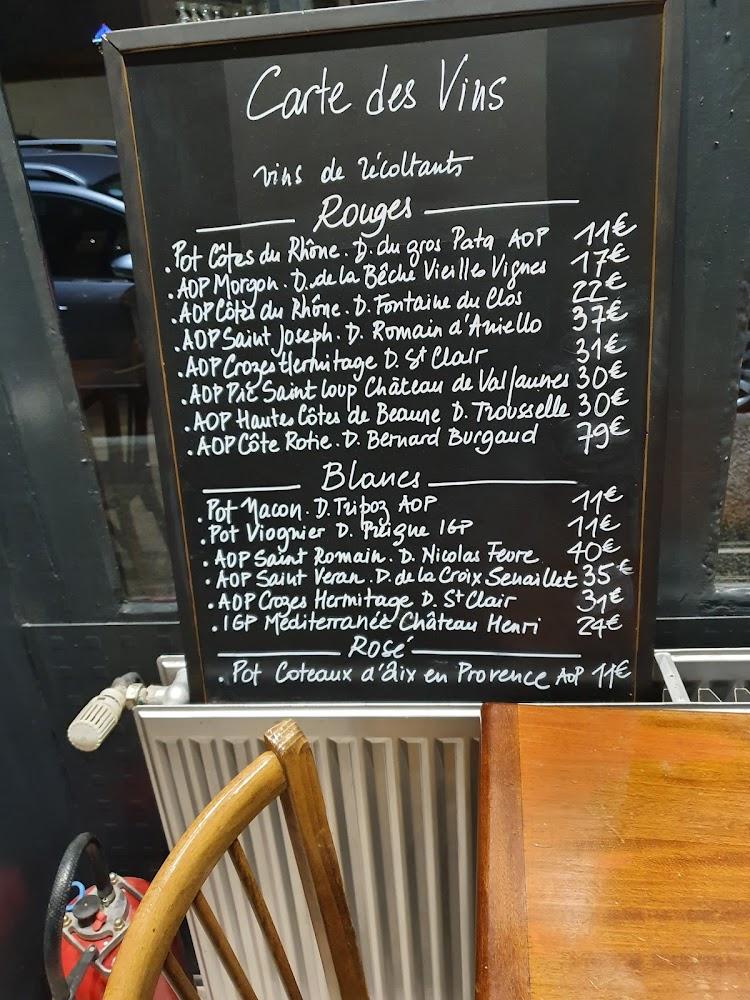 Carte des Vins
vins de récoltants
Rouges
. Pot Côtes du Rhône. D. du gros Pata AOP 11€
. AOP Morgon. D. de la Bêche Vieilles Vignes 17€
. AOP Côtes du Rhône. D. Fontaine du Clos 22€
. AOP Saint Joseph. D. Romain d'Aniello 37€
. AOP Crozes Hermitage D. St Clair 31€
. AOP Pic Saint Loup Château de Valflaunes 30€
. AOP Hautes Côtes de Beaune D. Trousselle 30€
. AOP Côte Rotie. D. Bernard Burgaud 79€
Blancs
. Pot Macon. D. Tripoz AOP 11€
. Pot Viognier D. Pieigne IGP 11€
. AOP Saint Romain. D. Nicolas Fevre 40€
. AOP Saint Veran. D. de la Croix Senaillet 35€
. AOP Crozes Hermitage D. St Clair 31€
. IGP Mediterranée Château Henri 24€
Rosé
. Pot Coteaux d'aix en Provence AOP 11€